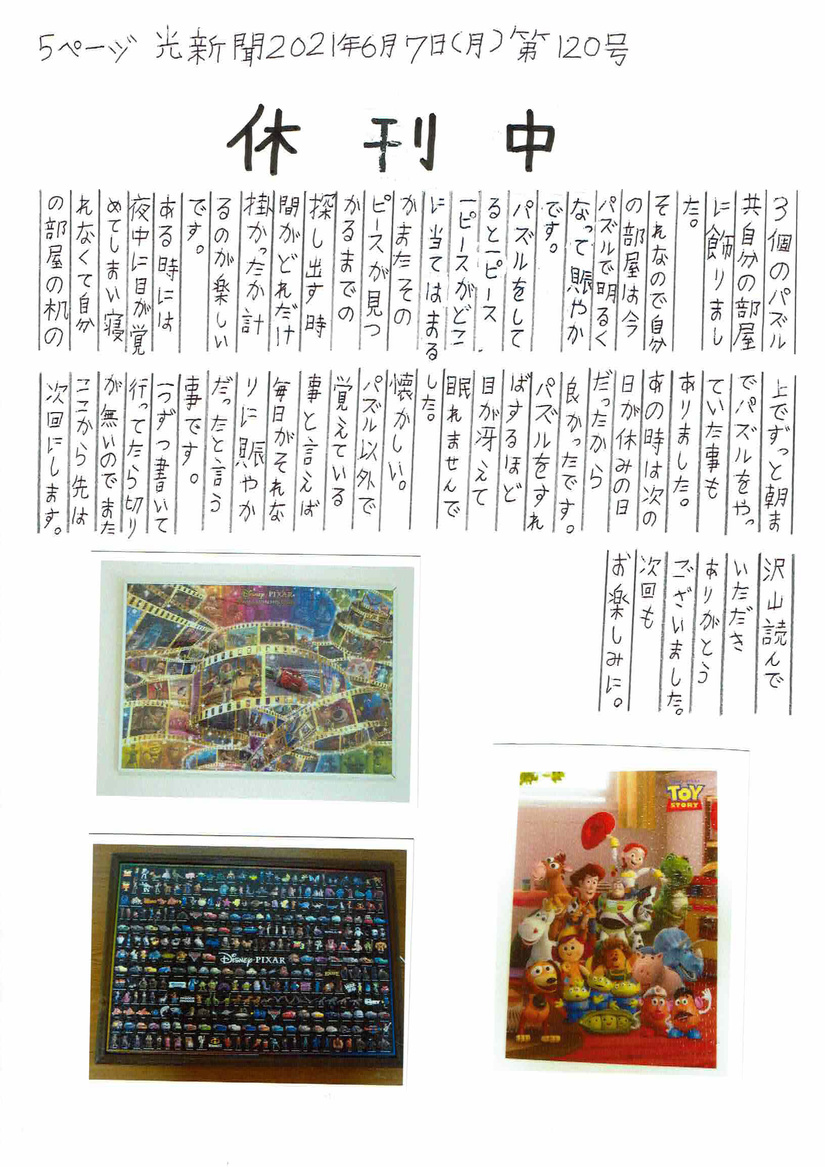 5ページ 光新聞2021年6月7日(月)第120号
休刊中
3個のパズル
共自分の部屋
に飾りまし
た。
それなので自分
の部屋は今
パズルで明るく
なって賑やか
です。
パズルをして
ると一ピース
一ピースがどこ
に当てはまる
かまたその
ピースが見つ
かるまでの
探し出す時
間がどれだけ
掛かったか計
るのが楽しい
です。
ある時には
夜中に目が覚
めてしまい寝
れなくて自分
の部屋の机の
上でずっと朝ま
でパズルをやっ
ていた事も
ありました。
あの時は次の
日が休みの日
だったから
良かったです。
パズルをすれ
ばするほど
目が冴えて
眠れませんで
した。
懐かしい。
パズル以外で
覚えている
事と言えば
毎日がそれな
りに賑やか
だったと言う
事です。
一つずつ書いて
行ってたら切り
が無いのでまた
ここから先は
次回にします。
沢山読んで
いただき
ありがとう
ございました。
次回も
お楽しみに。
Disney PIXAR
Disney PIXAR
TOY
STORY